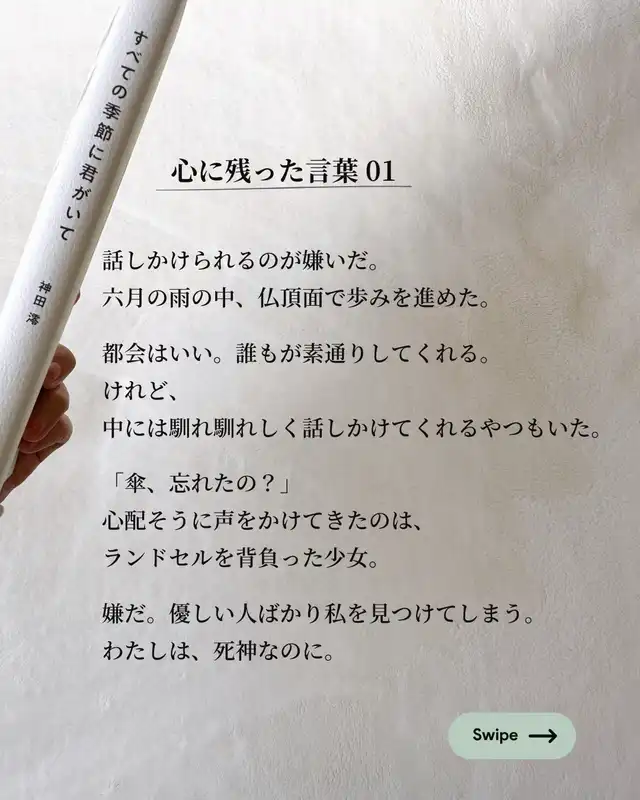 すべての季節に君がいて
神田 澪
心に残った言葉 01
話しかけられるのが嫌いだ。
六月の雨の中、仏頂面で歩みを進めた。
都会はいい。誰もが素通りしてくれる。
けれど、
中には馴れ馴れしく話しかけてくれるやつもいた。
「傘、忘れたの？」
心配そうに声をかけてきたのは、
ランドセルを背負った少女。
嫌だ。優しい人ばかり私を見つけてしまう。
わたしは、死神なのに。
Swipe →